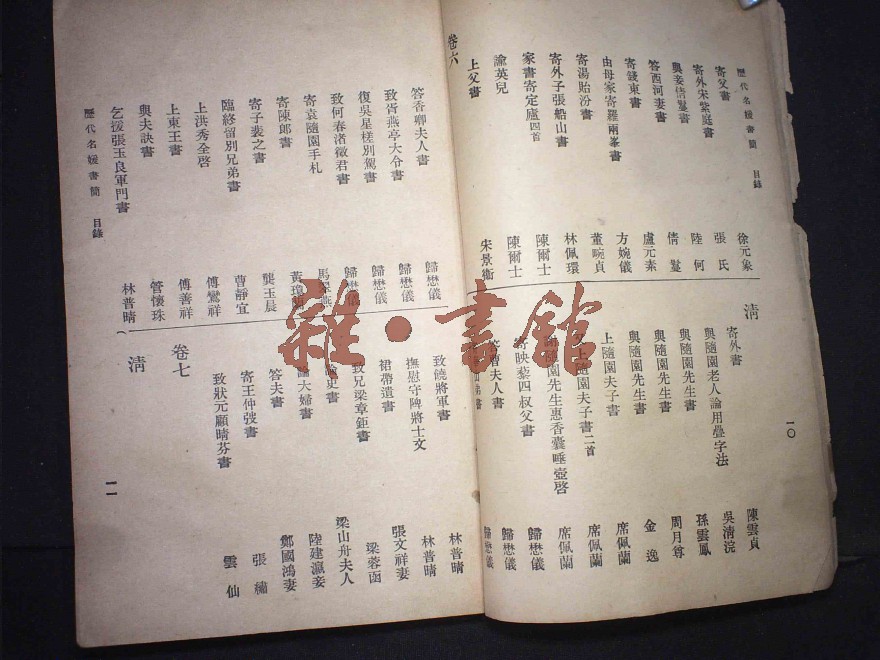 歷代名媛書簡 目錄
寄父書 徐元象
寄外宋紫庭書 張氏
與妾倩鬟書 陸何
答西河妻書 倩鬟
寄錢東書 盧元素
由母家寄羅兩峯書 方婉儀
寄湯貽汾書 董畹貞
寄外子張船山書 林佩環
家書寄定廬四首 陳爾士
諭英兒 陳爾士
上父書 宋景衞
卷六
清
寄外書 陳雲貞
與隨園老人論用疊字法 吳清浣
與隨園先生書 孫雲鳳
與隨園先生書 周月尊
與隨園先生書 金逸
上隨園夫子書 席佩蘭
又上隨園夫子書二首 席佩蘭
隨園先生惠香囊唾壺啓 席佩蘭
寄映藜四叔父書 歸懋儀
答曹夫人書 歸懋儀
弟書 歸懋儀
一〇
答香卿夫人書 歸懋儀
致胥燕亭大令書 歸懋儀
復吳星槎別駕書 歸懋儀
致何春渚徵君書 歸懋儀
寄袁隨園手札 馬翠燕
寄陳郎書 黃
寄子裴之書 龔玉晨
臨終留別兄弟書 曹靜宜
上洪秀全啓 傅鸞祥
上東王書 傅善祥
與夫訣書 管懷珠
乞援張玉良軍門書 林普晴
歷代名媛書簡 目錄
致饒將軍書 林普晴
撫慰守陴將士文 林普晴
裙帶遺書 張文祥妻
致兄梁章鉅書 梁蓉函
論史書 梁山舟夫人
諭大婦書 陸建瀛妾
答夫書 鄭國鴻妻
寄王仲弢書 張繡
致狀元顧晴芬書 雲仙
卷七
清
一一
雜·書館